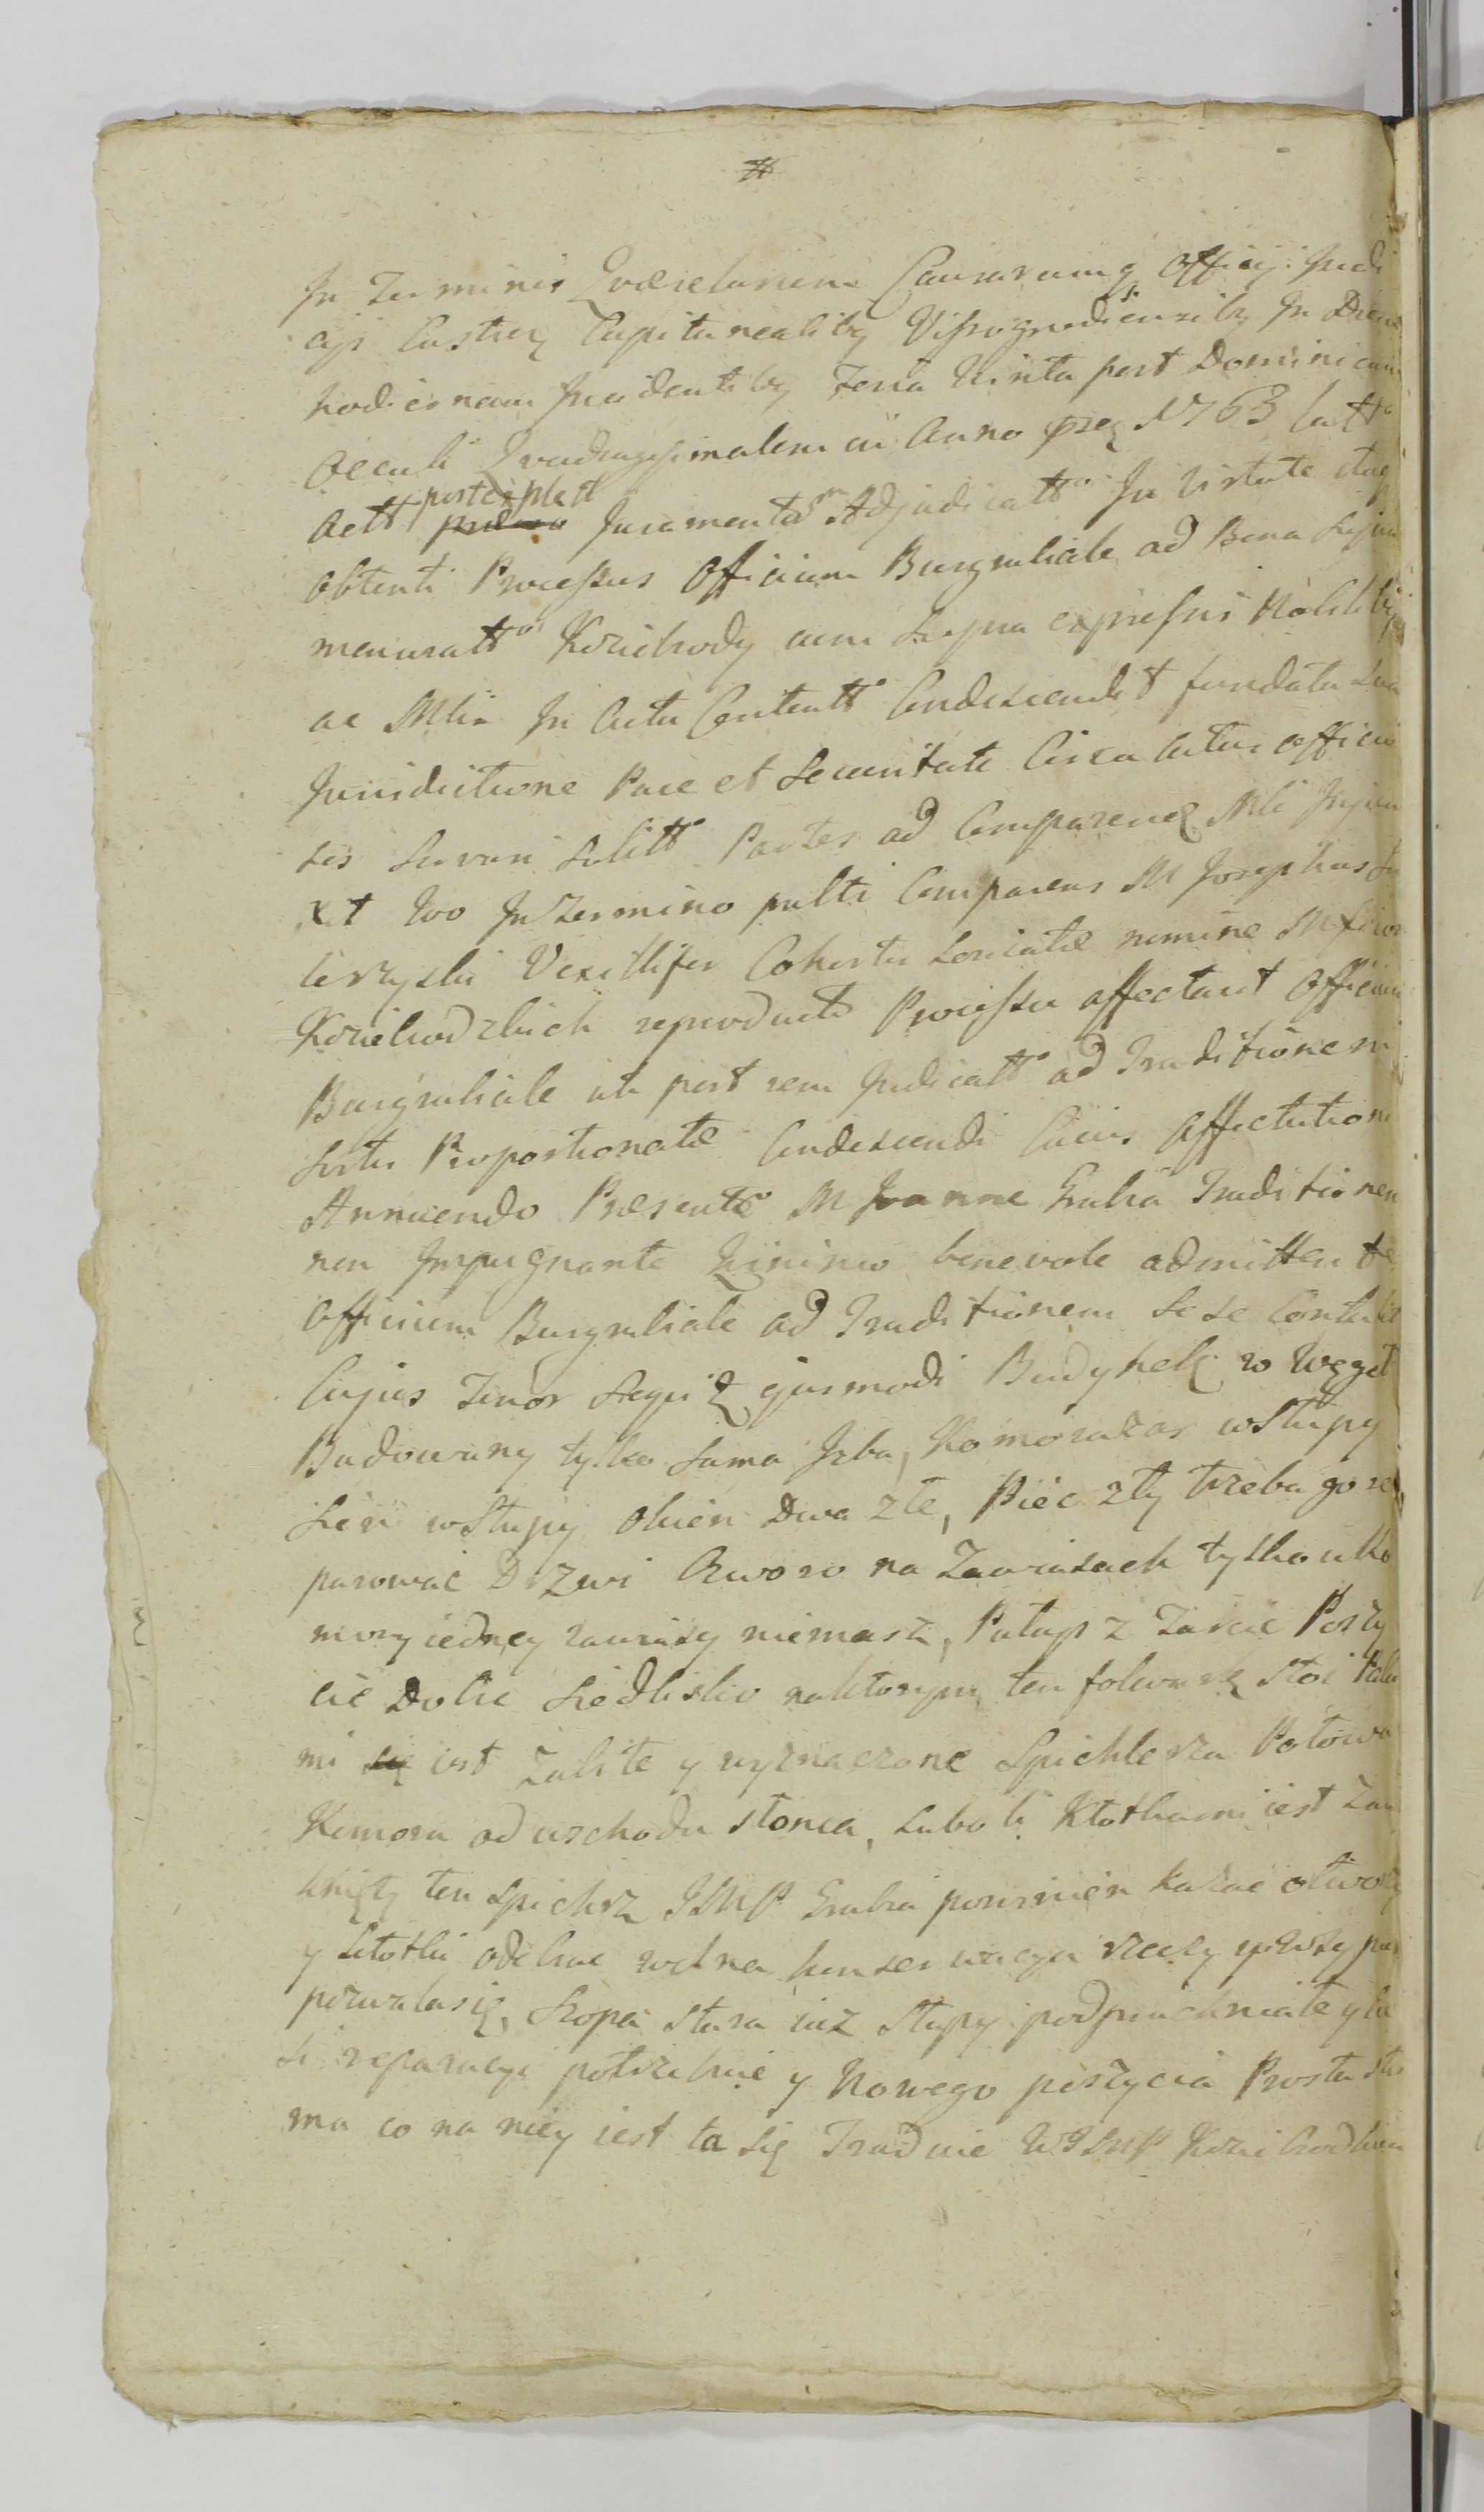 #
In Terminis Qværelarum Causarumq Officij Judi
cijs Castren Capitanealibq Vissogrodiensibq In Diem
hodiernam Incidentibq Feria Vinta post Dominicam
Oculi Qvadragesimalem in Anno præs 1763 latt
actt postexplett Juramenta Adjudicatt In Virtute itaq
obtenti Processus Officium Burgrabiale ad Bona Supra
menuratt Koziebrody cum Supra expressis Nobilibq
ac Mlia In Actu Contentt Condescendit fundata sua
Jurisdictione Pace et Securitate Circa Actus officio
ses Servari solitt Partes ad Comparenq Mli Injun
xit Qvo In Termino pulti Comparens M Josephus
Vexillifer Cohortis Loricatæ nomine
Koziebrodzkich reproducto Processu affectavit Officium
Burgrabiale uti post rem Judicatt ad Traditionem
Sortis Proportionatæ Condescendi Cuius Affectationi
Annuendo Præsente M Joanne Grabia Traditionem
non Impugnante Qvinimo benevole admittente
Officium Burgrabiale ad Traditionem Se se Contulit
Cujus Tenor Seqvi ejusmodi Budynek w Węgeł
Budowany tylko sama Izba, Komora zas w Słupy
Sien w Słupy Okien Dwa złe, Piec zły trzeba go re
parowac Drzwi Cworo na Zawiasach tylko u Ko
mory iedney zawiasy niemasz, Pułap z Tarcic Poszy
cie Dobre Siedlisko naktorym ten folwark stoi Kołka
mi iest Zabite y wyznaczone Spichlerza Połowa
Komora od wschodu słonca, Lubo ti Kłotkami iest Zam
knięty ten Spichrz JMP Grabia powinien kazac otworzy
y kłotki odebrac wolna konserwacya rzeczy
pozwalasię, Szopa stara iuz słupy podpruchniałe y
reparacyi potrzebuie y Nowego poszycia Prosta
ma co na niey iest ta się Traduie WJMP Koziebrodzkim